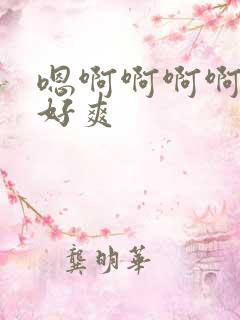 嗯啊啊啊啊
好爽
龚明华